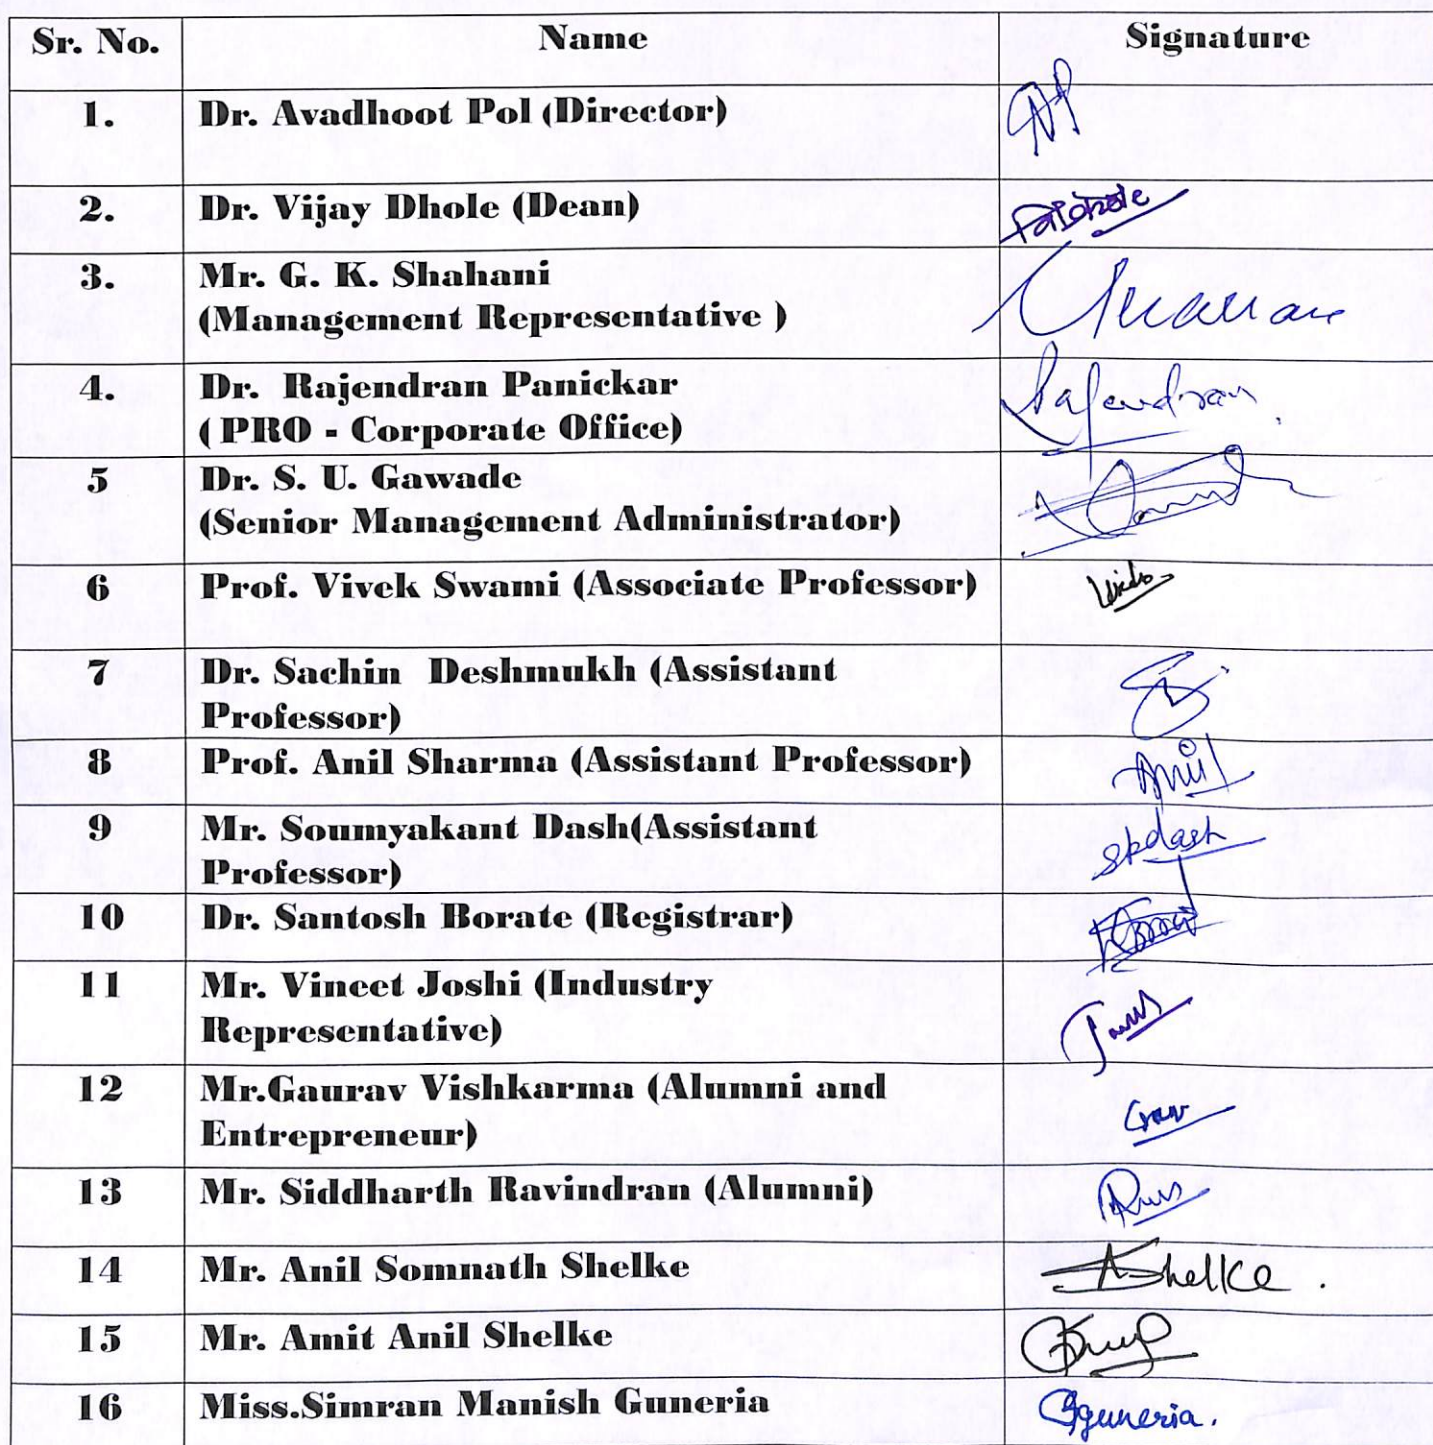 Sr. No. Name Signature
1. Dr. Avadhoot Pol (Director)
2. Dr. Vijay Dhole (Dean)
3. Mr. G. K. Shahani
(Management Representative )
4. Dr. Rajendran Panickar Rajendran
( PRO - Corporate Office)
5 Dr. S. U. Gawade
(Senior Management Administrator)
6 Prof. Vivek Swami (Associate Professor)
7 Dr. Sachin Deshmukh (Assistant
Professor)
8 Prof. Anil Sharma (Assistant Professor) Anil
9 Mr. Soumyakant Dash(Assistant skdash
Professor)
10 Dr. Santosh Borate (Registrar)
11 Mr. Vineet Joshi (Industry
Representative)
12 Mr.Gaurav Vishkarma (Alumni and
Entrepreneur)
13 Mr. Siddharth Ravindran (Alumni)
14 Mr. Anil Somnath Shelke AShelke .
15 Mr. Amit Anil Shelke
16 Miss.Simran Manish Guneria Sguneria.